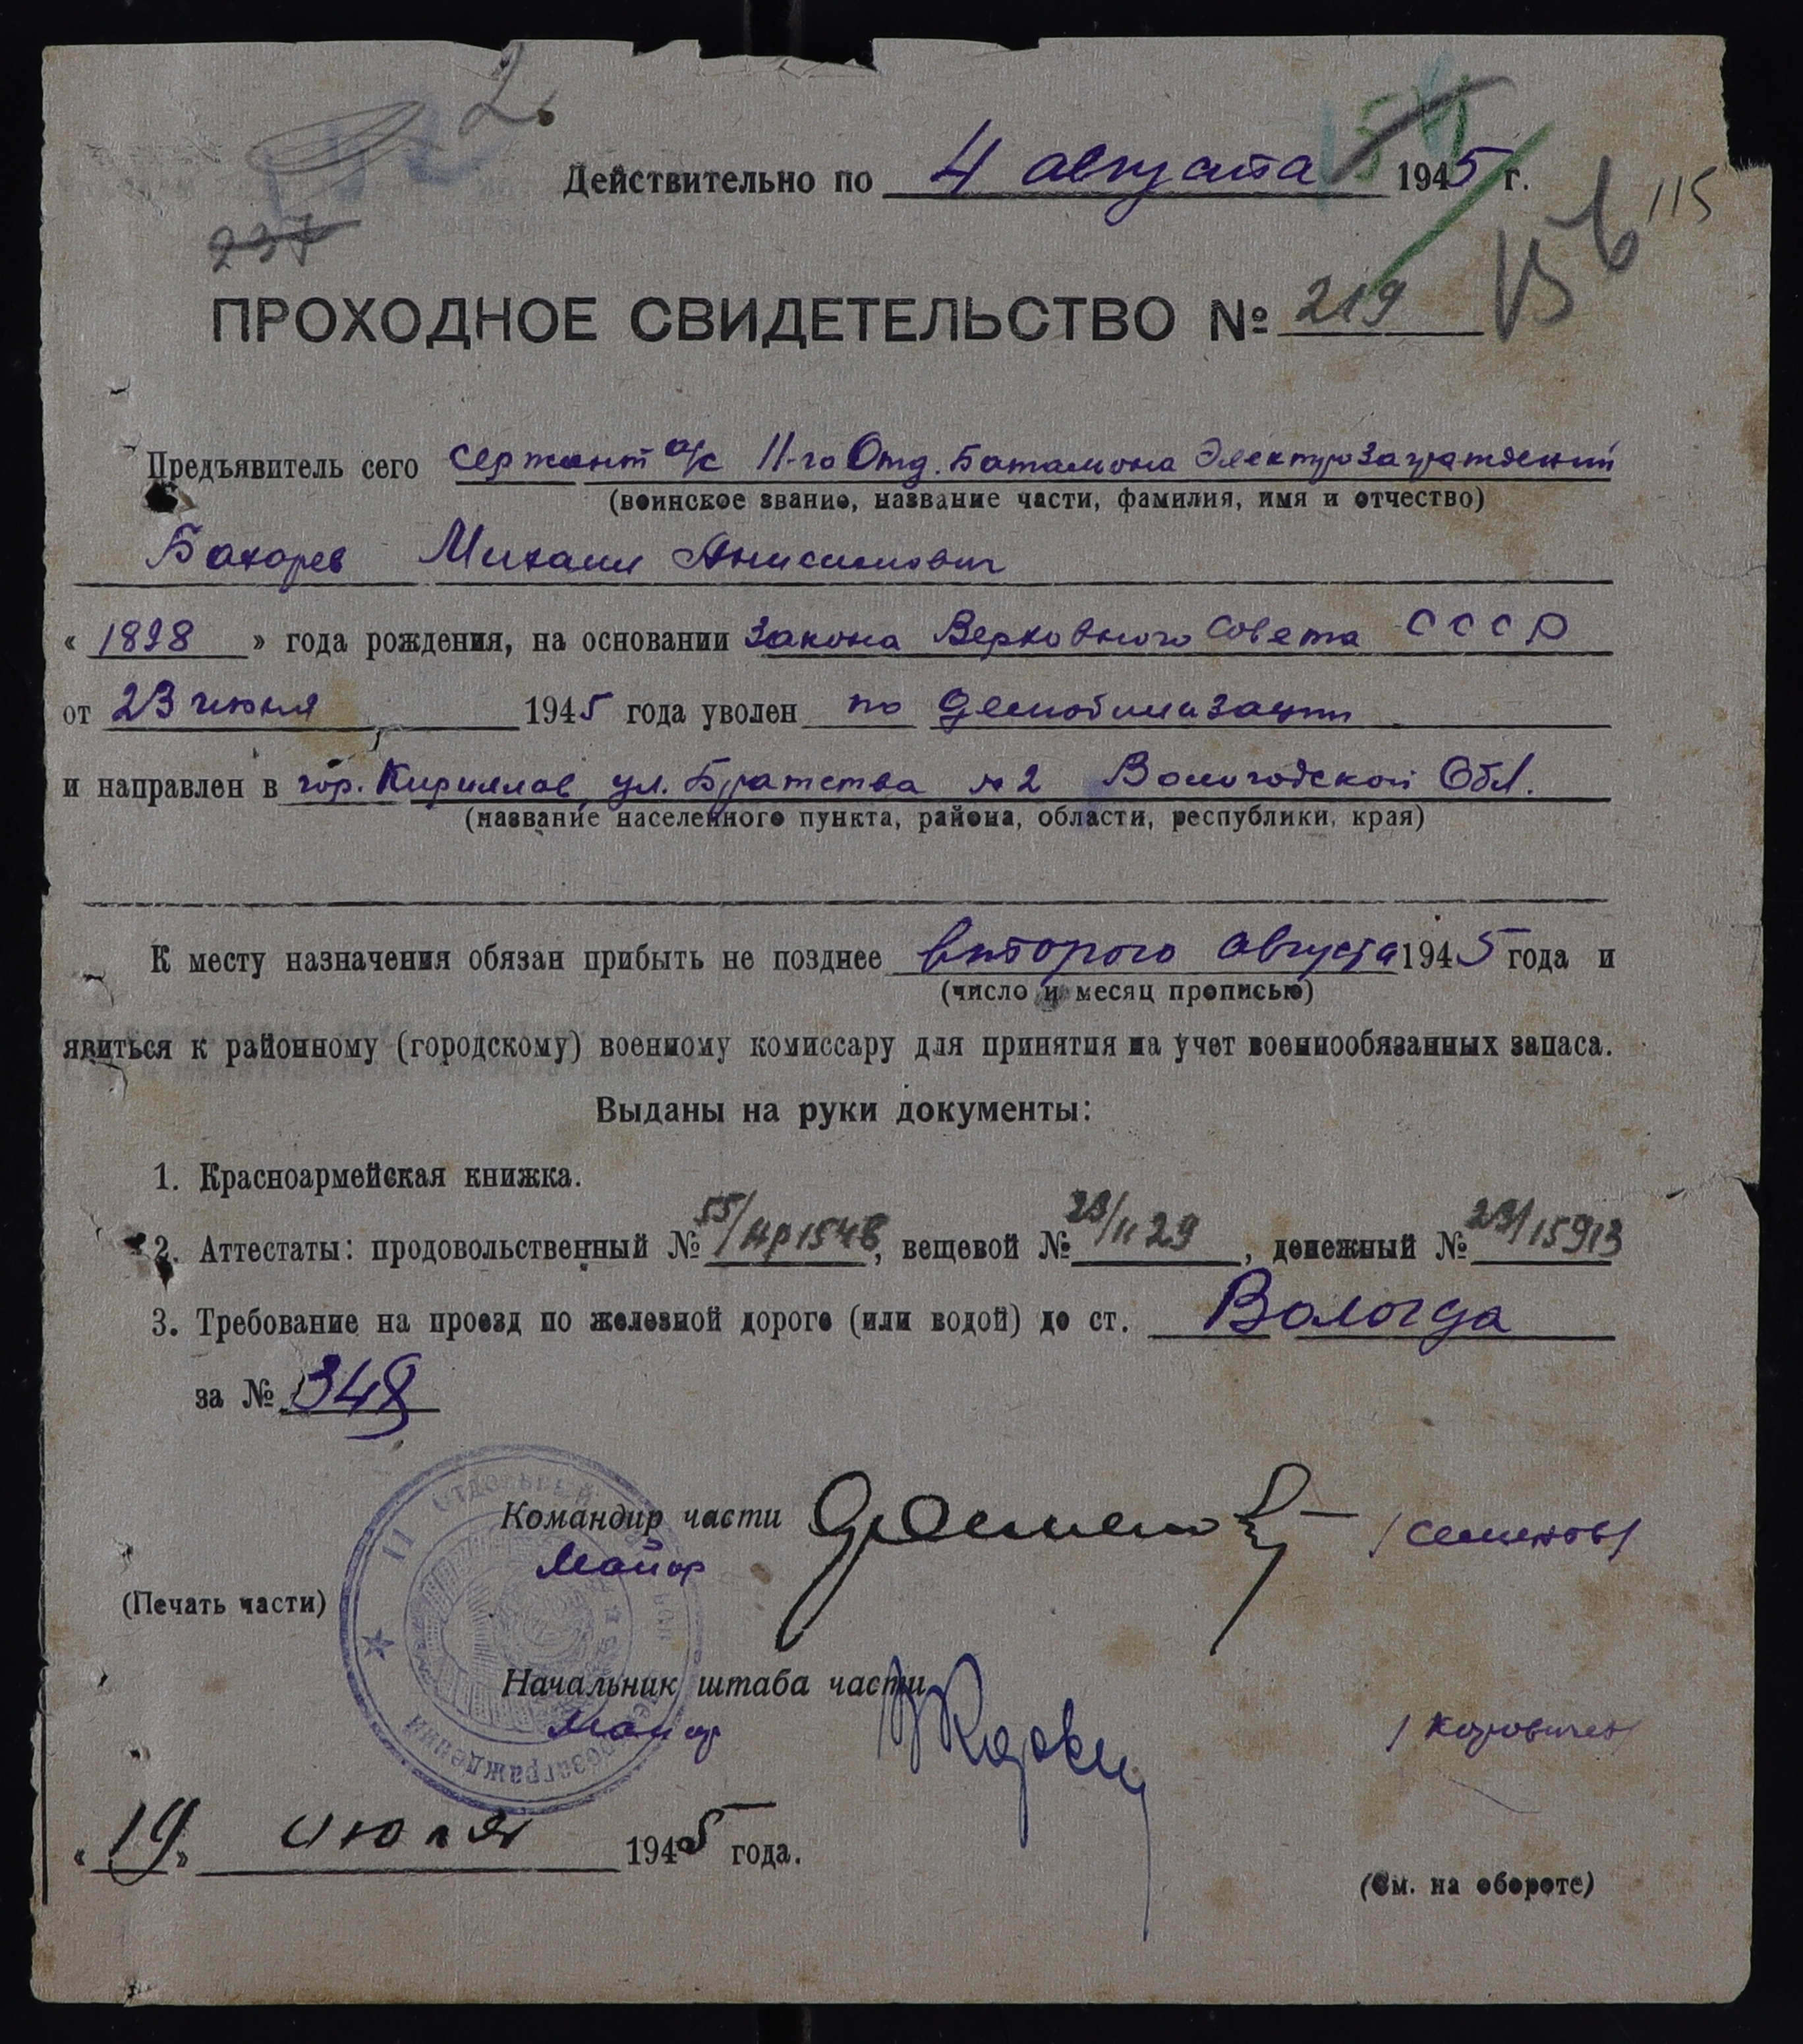 2.
Действительно по 4 августа 1945 г.
115
237
156
ПРОХОДНОЕ СВИДЕТЕЛЬСТВО № 219
Предъявитель сего сержант а/с 11-го Отд. Батальона Электрозаграждений
(воинское звание, название части, фамилия, имя и отчество)
Бахарев Михаил Анисимович
« 1898 » года рождения, на основании Закона Верховного Совета СССР
от 23 июня 1945 года уволен по демобилизации
и направлен в гор. Кириллов, ул. Братства № 2 Вологодской Обл.
(название населенного пункта, района, области, республики, края)
К месту назначения обязан прибыть не позднее второго августа 1945 года и
(число и месяц прописью)
явиться к районному (городскому) военному комиссару для принятия на учет военнообязанных запаса.
Выданы на руки документы:
1. Красноармейская книжка.
2. Аттестаты: продовольственный № 55/ , вещевой № 23/1129, денежный № 23/15913
3. Требование на проезд по железной дороге (или водой) до ст. Вологда
за № 348
Командир части /Семенов/
Майор
(Печать части)
11 ОТДЕЛЬНЫЙ
Начальник штаба части
Майор
« 19 » июля 1945 года.
(См. на обороте)